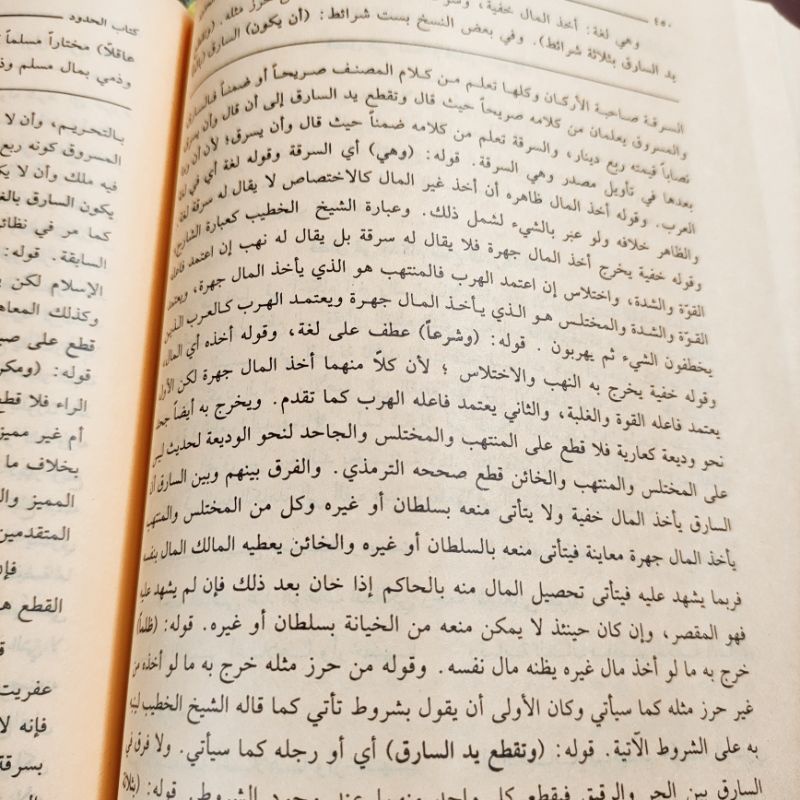 ٤٥٠
وهي لغة: أخذ المال خفية، وشر
حرز مثله.
يد السارق بثلاثة شرائط). وفي بعض النسخ بست شرائط: (أن يكون) السارق
السرقة صاحبة الأركان وكلها تعلم من كلام المصنف صريحاً أو ضمناً فالسارق
والمسروق يعلمان من كلامه صريحاً حيث قال وتقطع يد السارق إلى أن قال وأن يسرق
نصاباً قيمته ربع دينار، والسرقة تعلم من كلامه ضمناً حيث قال وأن يسرق؛ لأن أن وما
بعدها في تأويل مصدر وهي السرقة. قوله: (وهي) أي السرقة وقوله لغة أي في لغة
العرب. وقوله أخذ المال ظاهره أن أخذ غير المال كالاختصاص لا يقال له سرقة لغة
والظاهر خلافه ولو عبر بالشيء لشمل ذلك. وعبارة الشيخ الخطيب كعبارة الشارح،
وقوله خفية يخرج أخذ المال جهرة فلا يقال له سرقة بل يقال له نهب إن اعتمد فاعله
القوّة والشدة، واختلاس إن اعتمد الهرب فالمنتهب هو الذي يأخذ المال جهرة، ويعتمد
القوّة والشدة والمختلس هو الذي يأخذ المال جهرة ويعتمد الهرب كالعرب الذين
يخطفون الشيء ثم يهربون . قوله: (وشرعاً) عطف على لغة، وقوله أخذه أي المال،
وقوله خفية يخرج به النهب والاختلاس ؛ لأن كلاّ منهما أخذ المال جهرة لكن الأول
يعتمد فاعله القوة والغلبة، والثاني يعتمد فاعله الهرب كما تقدم. ويخرج به أيضاً جحد
نحو وديعة كعارية فلا قطع على المنتهب والمختلس والجاحد لنحو الوديعة لحديث ليس
على المختلس والمنتهب والخائن قطع صححه الترمذي. والفرق بينهم وبين السارق أن
السارق يأخذ المال خفية ولا يتأتى منعه بسلطان أو غيره وكل من المختلس والمنتهب
يأخذ المال جهرة معاينة فيتأتى منعه بالسلطان أو غيره والخائن يعطيه المالك المال بنفسه
فربما يشهد عليه فيتأتى تحصيل المال منه بالحاكم إذا خان بعد ذلك فإن لم يشهد عليه
فهو المقصر، وإن كان حينئذ لا يمكن منعه من الخيانة بسلطان أو غيره. قوله: (ظلماً)
خرج به ما لو أخذ مال غيره يظنه مال نفسه. وقوله من حرز مثله خرج به ما لو أخذه من
غير حرز مثله كما سيأتي وكان الأولى أن يقول بشروط تأتي كما قاله الشيخ الخطيب لينبه
به على الشروط الآتية. قوله: (وتقطع يد السارق) أي أو رجله كما سيأتي. ولا فرق في
السارق بين الحر والرقيق فيقطع كل واحد منهما عند وجود الشروط. قوله: (بثلاثة
كتاب الحدود
عاقلاً) مختاراً مسلماً
وذمي بمال مسلم
بالتحريم، وأن لا
المسروق كونه ربع
فيه ملك وأن لا
يكون السارق
كما مر في نظائر
السابقة. قوله:
الإسلام لكن
وكذلك
قطع على
قوله:
الراء فلا
أم غير مميز
بخلاف ما
المميز
المتقدمين
فإن
القطع
عفريت
فإنه لا
بسرقة